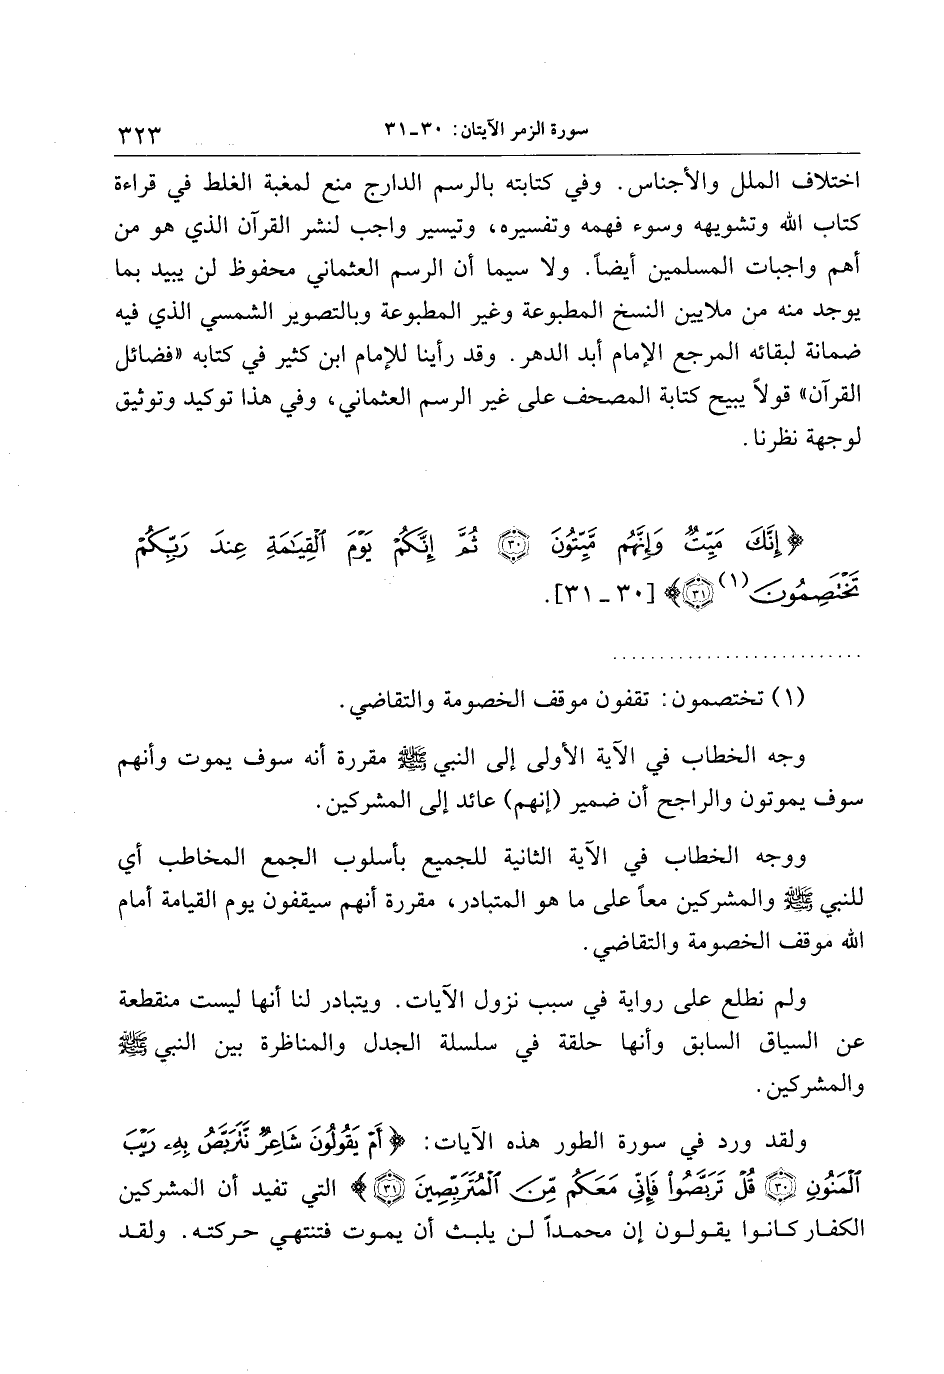 سورة الزمر الآيتان: ٣٠-٣١
٣٢٣
اختلاف الملل والأجناس. وفي كتابته بالرسم الدارج منع لمغبة الغلط في قراءة
كتاب الله وتشويهه وسوء فهمه وتفسيره، وتيسير واجب لنشر القرآن الذي هو من
أهم واجبات المسلمين أيضاً. ولا سيما أن الرسم العثماني محفوظ لن يبيد بما
يوجد منه من ملايين النسخ المطبوعة وغير المطبوعة وبالتصوير الشمسي الذي فيه
ضمانة لبقائه المرجع الإمام أبد الدهر. وقد رأينا للإمام ابن كثير في كتابه «فضائل
القرآن» قولاً يبيح كتابة المصحف على غير الرسم العثماني، وفي هذا توكيد وتوثيق
لوجهة نظرنا.
﴿إِنَّكَ مَيِّتٌ وَإِنَّهُم مَّيِّتُونَ ٣٠ ثُمَّ إِنَّكُمْ يَوْمَ ٱلْقِيَٰمَةِ عِندَ رَبِّكُمْ
تَخْتَصِمُونَ (١) ٣١﴾ [٣٠ - ٣١].
..........................
(١) تختصمون: تقفون موقف الخصومة والتقاضي.
وجه الخطاب في الآية الأولى إلى النبي ﷺ مقررة أنه سوف يموت وأنهم
سوف يموتون والراجح أن ضمير (إنهم) عائد إلى المشركين.
ووجه الخطاب في الآية الثانية للجميع بأسلوب الجمع المخاطب أي
للنبي ﷺ والمشركين معاً على ما هو المتبادر، مقررة أنهم سيقفون يوم القيامة أمام
الله موقف الخصومة والتقاضي.
ولم نطلع على رواية في سبب نزول الآيات. ويتبادر لنا أنها ليست منقطعة
عن السياق السابق وأنها حلقة في سلسلة الجدل والمناظرة بين النبي ﷺ
والمشركين.
ولقد ورد في سورة الطور هذه الآيات: ﴿أَمْ يَقُولُونَ شَاعِرٌ نَّتَرَبَّصُ بِهِۦ رَيْبَ
ٱلْمَنُونِ ٣٠ قُلْ تَرَبَّصُوا۟ فَإِنِّى مَعَكُم مِّنَ ٱلْمُتَرَبِّصِينَ ٣١﴾ التي تفيد أن المشركين
الكفار كانوا يقولون إن محمداً لن يلبث أن يموت فتنتهي حركته. ولقد